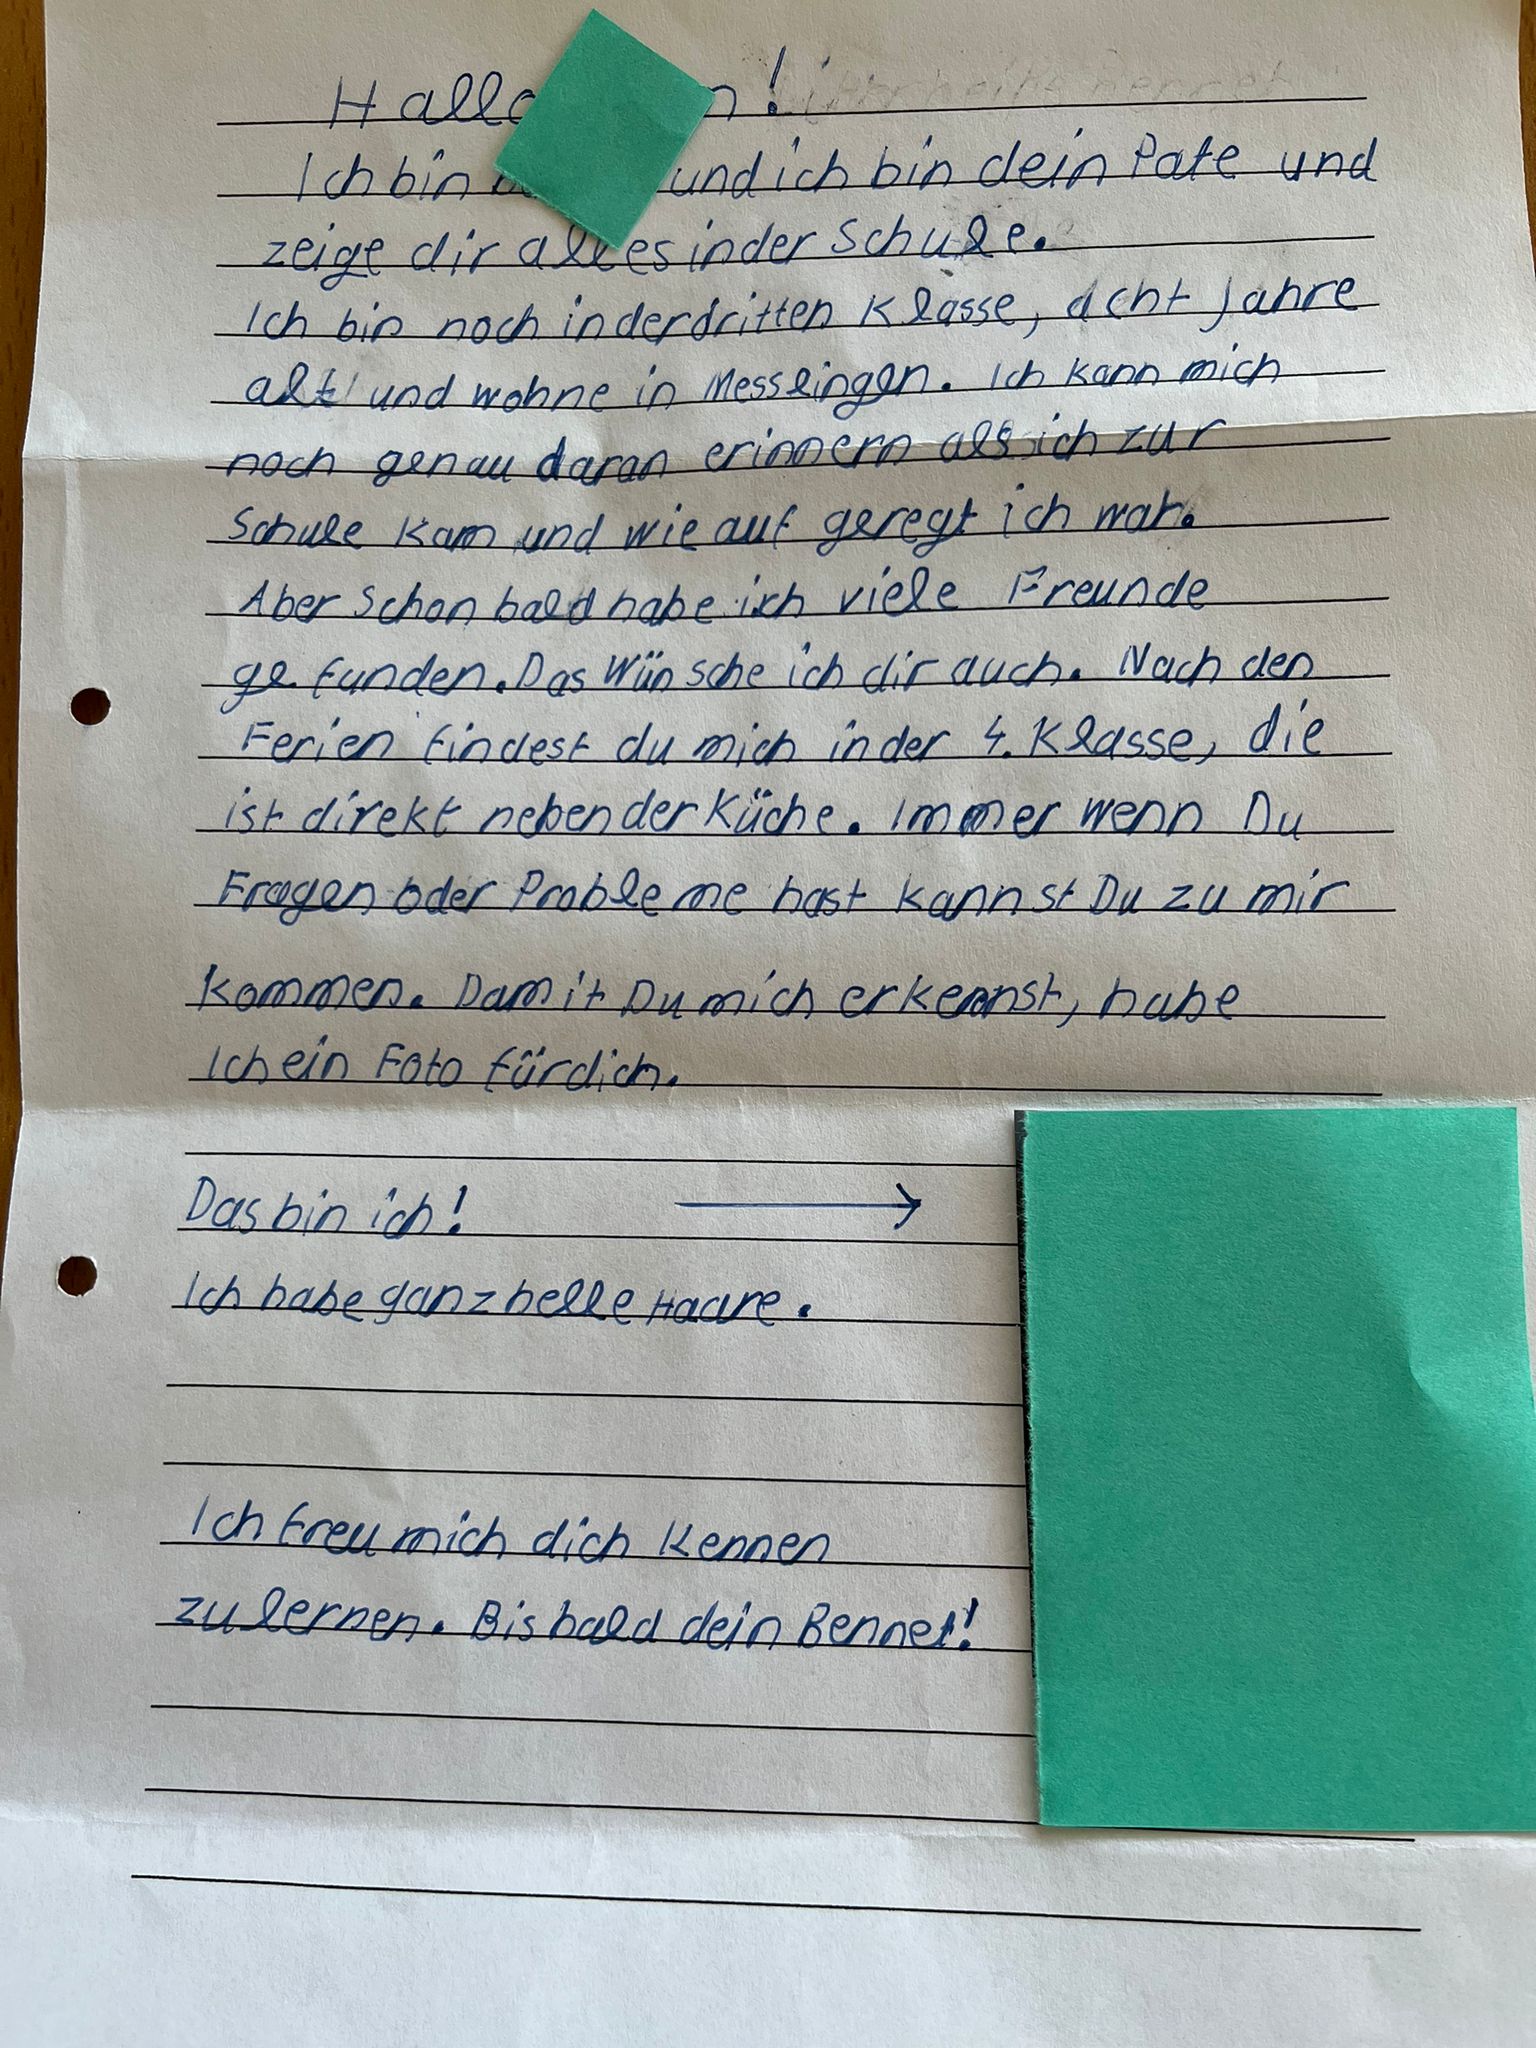 Hallo n!
Ich bin und ich bin dein Pate und
zeige dir alles in der Schule.
Ich bin noch in der dritten Klasse, acht Jahre
alt und wohne in Messlingen. Ich kann mich
noch genau daran erinnern als ich zur
Schule kam und wie auf geregt ich war.
Aber schon bald habe ich viele Freunde
ge funden. Das Wünsche ich dir auch. Nach den
Ferien findest du mich in der 4. Klasse, die
ist direkt neben der Küche. Immer wenn Du
Fragen oder Probleme hast kannst Du zu mir
kommen. Damit Du mich erkennst, habe
Ich ein Foto für dich.
Das bin ich! →
Ich habe ganz helle Haare.
Ich freu mich dich kennen
zu lernen. Bis bald dein Bennet!